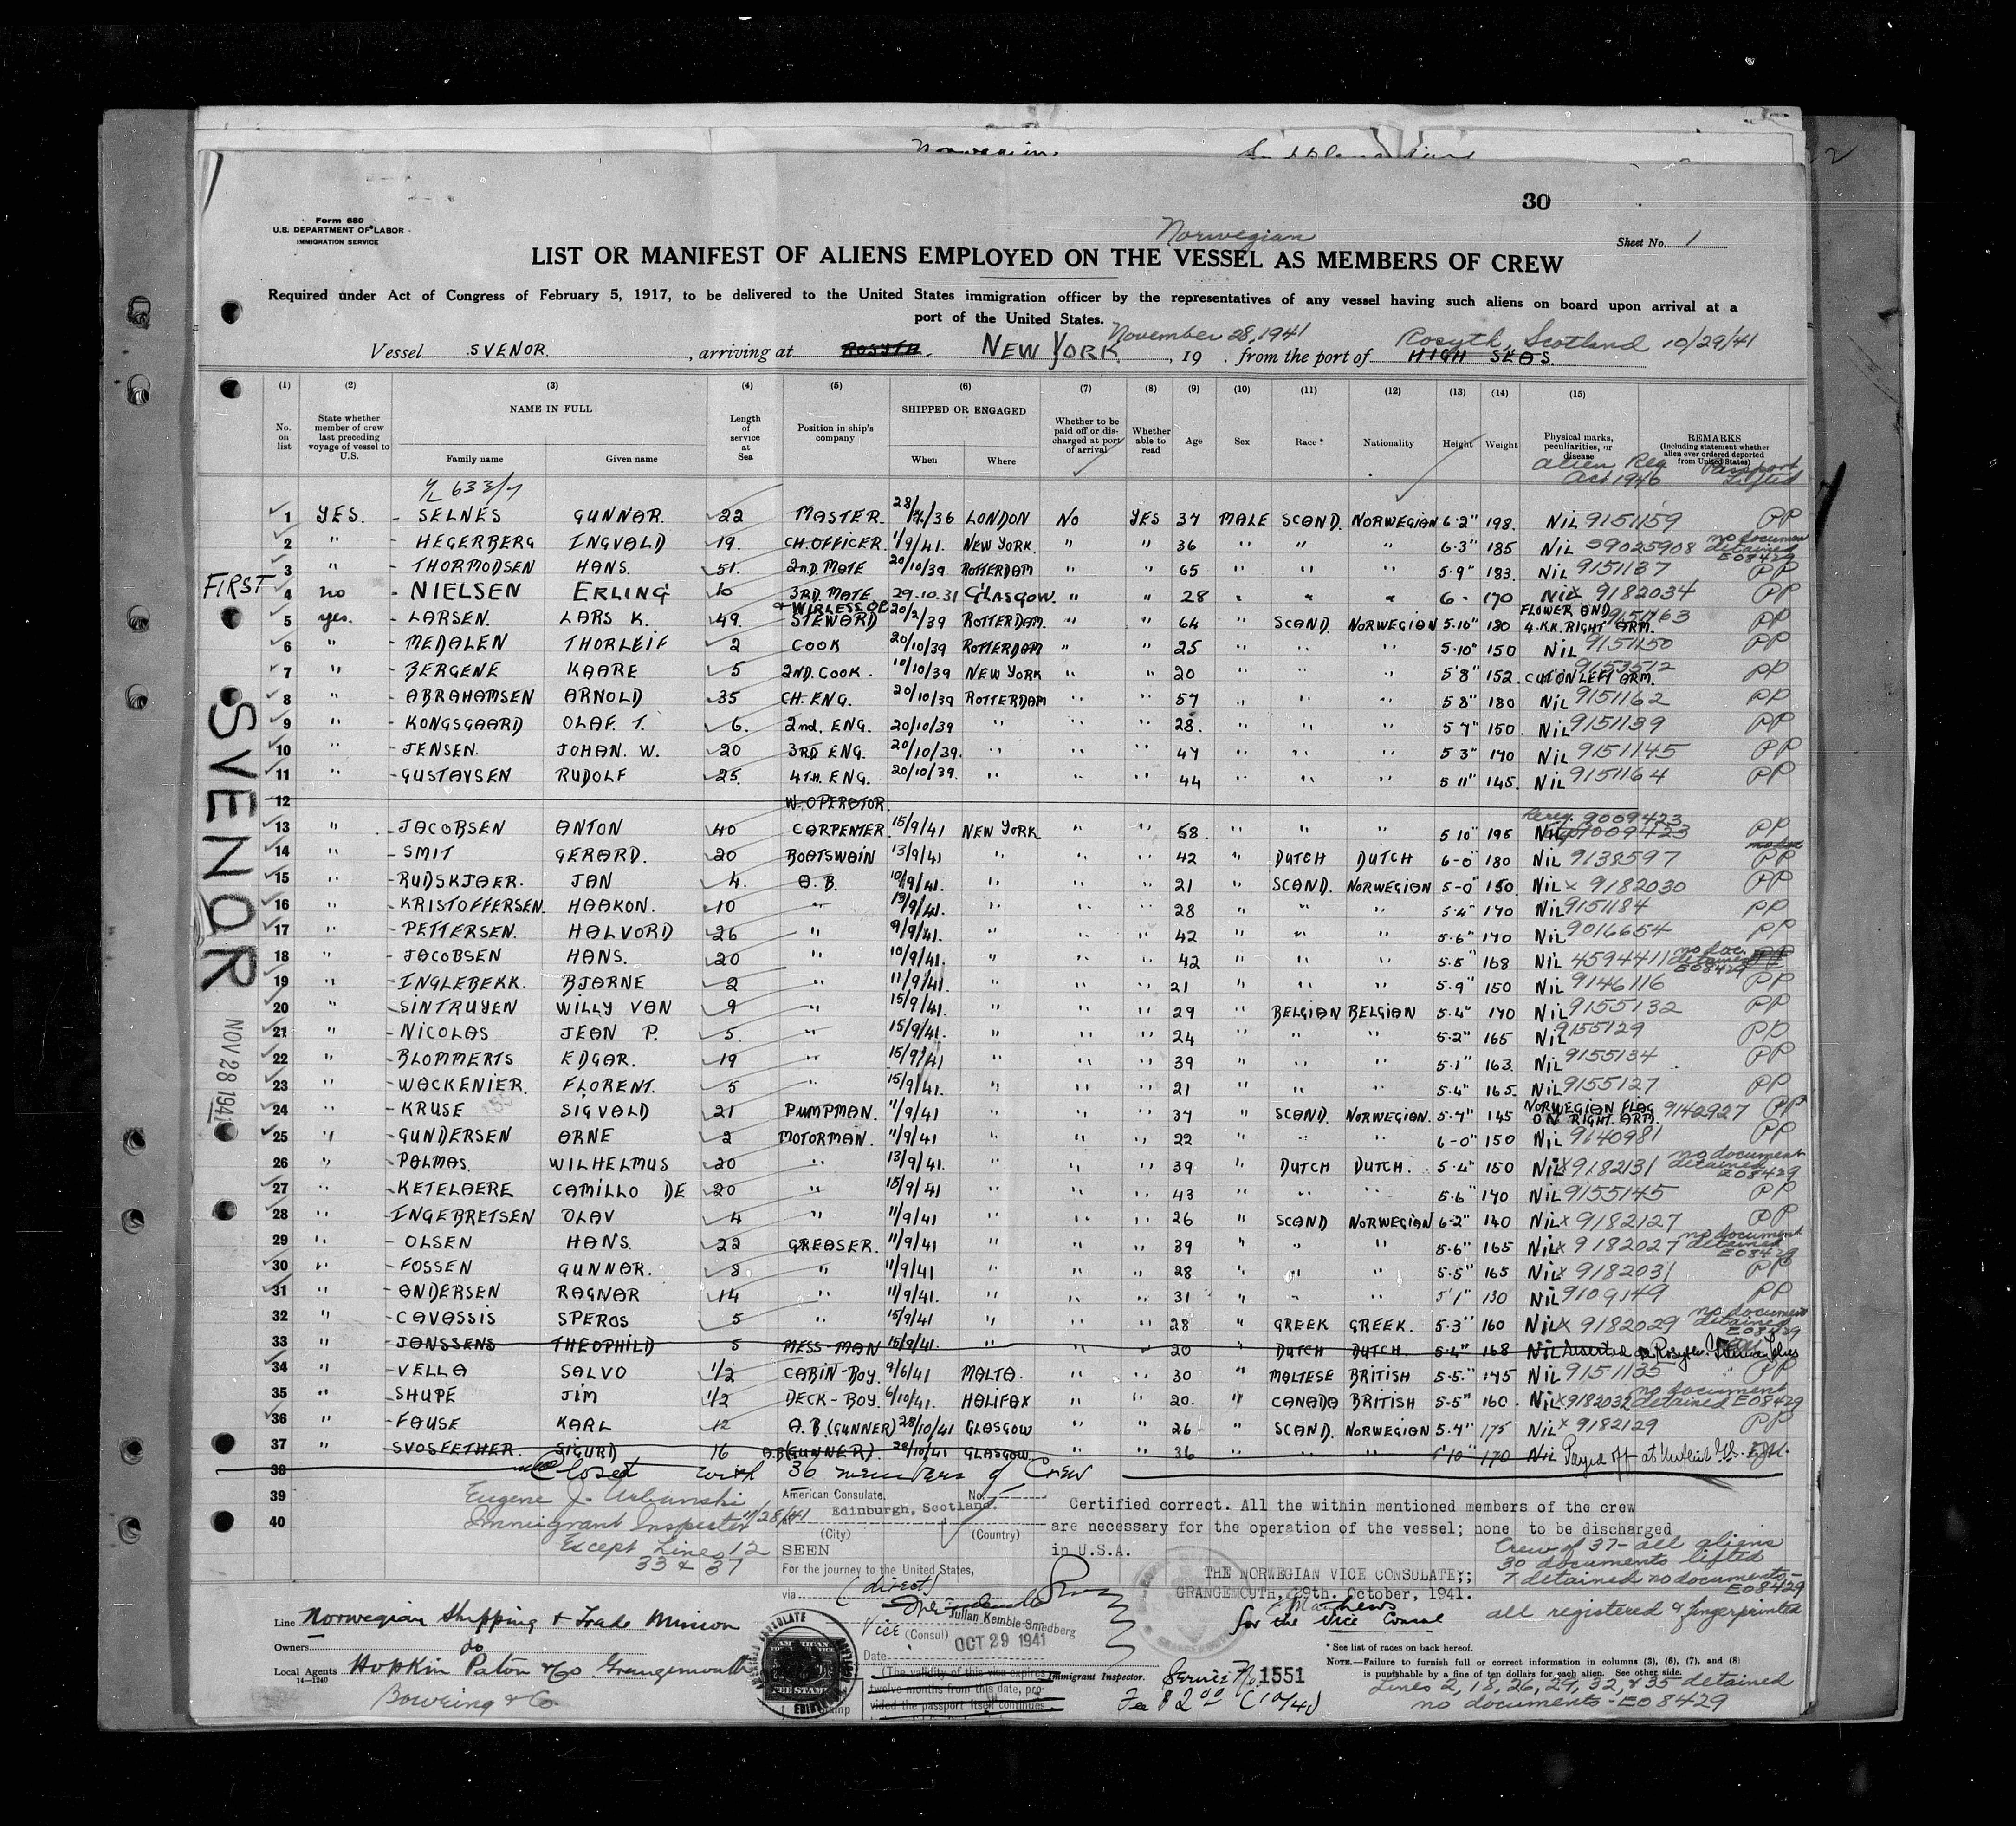 30
Form 680
U.S. DEPARTMENT OF LABOR
IMMIGRATION SERVICE
Norwegian
Sheet No. 1
LIST OR MANIFEST OF ALIENS EMPLOYED ON THE VESSEL AS MEMBERS OF CREW
Required under Act of Congress of February 5, 1917, to be delivered to the United States immigration officer by the representatives of any vessel having such aliens on board upon arrival at a
port of the United States.
November 28, 1941 Rosyth, Scotland 10/29/41
Vessel SVENOR, arriving at ROSYTH. NEW YORK, 19 . from the port of HIGH SEAS.
(1) (2) (3) (4) (5) (6) (7) (8) (9) (10) (11) (12) (13) (14) (15)
No. on list State whether member of crew last preceding voyage of vessel to U.S. NAME IN FULL Family name Given name Length of service at Sea Position in ship's company SHIPPED OR ENGAGED When Where Whether to be paid off or discharged at port of arrival Whether able to read Age Sex Race* Nationality Height Weight Physical marks, peculiarities, or disease REMARKS (Including statement whether alien ever ordered deported from United States)
Alien Reg. Act 1940 Passport Lifted
1 YES. - SELNES GUNNAR. 22 MASTER. LONDON No YES 37 MALE SCAND. NORWEGIAN 6·2" 198. NIL 9151159 PP
2 " - HEGERBERG INGVALD 19. CH.OFFICER. 1/9/41. NEW YORK. " " 36 " " " 6·3" 185 NIL 59025908 no document detained E08429
3 " - THORMODSEN HANS. 51. 2ND. MATE 20/10/39 ROTTERDAM " " 65 " " " 5·9" 183. NIL 9151137 PP
FIRST 4 no - NIELSEN ERLING 10 3RD. MATE & WIRLESS OP. 29.10.31 GLASGOW. " " 28 " " " 6 - 170 NIL x 9182034 PP
5 yes. - LARSEN. LARS K. 49. STEWARD 20/2/39 ROTTERDAM. " " 64 " SCAND. NORWEGIAN 5·10" 180 FLOWER AND 4.K.K. RIGHT ARM. 9151163 PP
6 " - MEDALEN THORLEIF 2 COOK 20/10/39 ROTTERDAM " " 25 " " " 5·10" 150 NIL 9151150 PP
7 " - BERGENE KAARE 5 2ND. COOK. 10/10/39 NEW YORK " " 20 " " " 5'8" 152. CUT ON LEFT ARM. 9153512 PP
8 " - ABRAHAMSEN ARNOLD 35 CH. ENG. 20/10/39 ROTTERDAM " " 57 " " " 5 8" 180 NIL 9151162 PP
9 " - KONGSGAARD OLAF. T. 6. 2nd. ENG. 20/10/39 " " " 28. " " " 5 7" 150. NIL 9151139 PP
10 " - JENSEN. JOHAN. W. 20 3RD ENG. 20/10/39. " " " 47 " " " 5 3" 170 NIL 9151145 PP
11 " - GUSTAVSEN RUDOLF 25. 4TH. ENG. 20/10/39. " " " 44 " " " 5 11" 145. NIL 9151164 PP
12 W. OPERATOR.
13 " - JACOBSEN ANTON 40 CARPENTER. 15/9/41 NEW YORK " " 58. " " " 5 10" 195 NIL Rereg. 9009423 PP
14 " - SMIT GERARD. 20 BOATSWAIN 13/9/41 " " " 42 " DUTCH DUTCH 6-0" 180 NIL 9138597 PP
15 " - RUDSKJAER. JAN 4. A.B. 10/9/41. " " " 21 " SCAND. NORWEGIAN 5-0" 150. NIL x 9182030 PP
16 " - KRISTOFFERSEN. HAAKON. 10 " 13/9/41. " " " 28 " " " 5·4" 170 NIL 9151184 PP
17 " - PETTERSEN. HALVORD 26 " 9/9/41. " " " 42 " " " 5·6" 170 NIL 9016654 PP
18 " - JACOBSEN HANS. 20 " 10/9/41. " " " 42 " " " 5·8" 168 NIL 4594411 no doc. detained E08429
19 " - INGLEBEKK. BJARNE 2 " 11/9/41. " " " 21 " " " 5·9" 150 NIL 9146116 PP
20 " - SINTRUYEN WILLY VAN 9 " 15/9/41. " " " 29 " BELGIAN BELGIAN 5·4" 170 NIL 9155132 PP
21 " - NICOLAS JEAN P. 5. " 15/9/41. " " " 24 " " " 5·2" 165 NIL 9155129 PP
22 " - BLOMMERTS EDGAR. 19 " 15/9/41 " " " 39 " " " 5·1" 163. NIL 9155134 PP
23 " - WACKENIER. FLORENT. 5 " 15/9/41. " " " 21 " " " 5·4" 165. NIL 9155127 PP
24 " - KRUSE SIGVALD 21 PUMPMAN. 11/9/41 " " " 37 " SCAND. NORWEGIAN. 5·7" 145 NORWEGIAN FLAG ON RIGHT ARM. 9142927 PP
25 " - GUNDERSEN ARNE 2 MOTORMAN. 11/9/41 " " " 22 " " " 6-0" 150 NIL 9140981 PP
26 " - PALMAS. WILHELMUS 20 " 13/9/41. " " " 39 " DUTCH DUTCH. 5·4" 150 NIL x 9182131 no document detained E08429
27 " - KETELAERE CAMILLO DE 20 " 15/9/41 " " " 43 " " " 5·6" 170 NIL 9155145 PP
28 " - INGEBRETSEN OLAV 4 " 11/9/41 " " " 26 " SCAND NORWEGIAN 6-2" 140 NIL x 9182127 PP
29 " - OLSEN HANS. 22 GREASER. 11/9/41 " " " 39 " " " 5·6" 165 NIL x 9182027 no document detained E08429
30 " - FOSSEN GUNNAR. 8 " 11/9/41 " " " 28 " " " 5·5" 165 NIL x 9182031 PP
31 " - ANDERSEN RAGNAR 14 " 11/9/41. " " " 31 " " " 5'1" 130 NIL 9109149 PP
32 " - CAVASSIS SPEROS 5 " 15/9/41 " " " 28 " GREEK GREEK. 5·3" 160 NIL x 9182029 no document detained E08429
33 " - JANSSENS THEOPHILD 5 MESS-MAN 15/9/41. " " " 20 " DUTCH DUTCH. 5·4" 168 NIL Deserted
34 " - VELLA SALVO 1/2 CABIN-BOY. 9/6/41 MALTA. " " 30 " MALTESE BRITISH 5-5." 145 NIL 9151135 PP
35 " - SHUPE JIM 1/2 DECK-BOY. 6/10/41. HALIFAX " " 20. " CANADA BRITISH 5-5" 160. NIL x 9182032 no document detained E08429
36 " - FAUSE KARL 12 A.B (GUNNER) 28/10/41 GLASGOW " " 26 " SCAND. NORWEGIAN 5.4" 175 NIL x 9182129 PP
37 " - SVOSFETHER. SIGURD 16 A.B (GUNNER). 28/10/41 GLASGOW " " 36 " " " 170 NIL Payed off at
38 Closed with 36 members of Crew
39
40
SVENOR
NOV 28 1941
Eugene J. Urbanski
Immigrant Inspector 11/28/41
Except Lines 12
33 & 37
American Consulate, No.
at Edinburgh, Scotland.
(City) (Country)
SEEN
For the journey to the United States,
via (direct)
Julian Kemble Smedberg
Vice (Consul)
Date OCT 29 1941
(The validity of this visa expires
twelve months from this date, pro-
vided the passport itself continues
Certified correct. All the within mentioned members of the crew
are necessary for the operation of the vessel; none to be discharged
in U.S.A.
THE NORWEGIAN VICE CONSULATE;;
GRANGEMOUTH, 29th. October, 1941.
for the Vice Consul
Crew of 37 - all aliens
30 documents lifted
7 detained no documents -
E08429
all registered & fingerprinted
Line Norwegian Shipping & Trade Mission
Owners do
Local Agents Hopkin Paton & Co Grangemouth
14—1240
Bowring & Co
Immigrant Inspector.
Service No. 1551
Fee $2.00
* See list of races on back hereof.
NOTE.—Failure to furnish full or correct information in columns (3), (6), (7), and (8)
is punishable by a fine of ten dollars for each alien. See other side.
Lines 2, 18, 26, 29, 32, & 35 detained
no documents - E08429